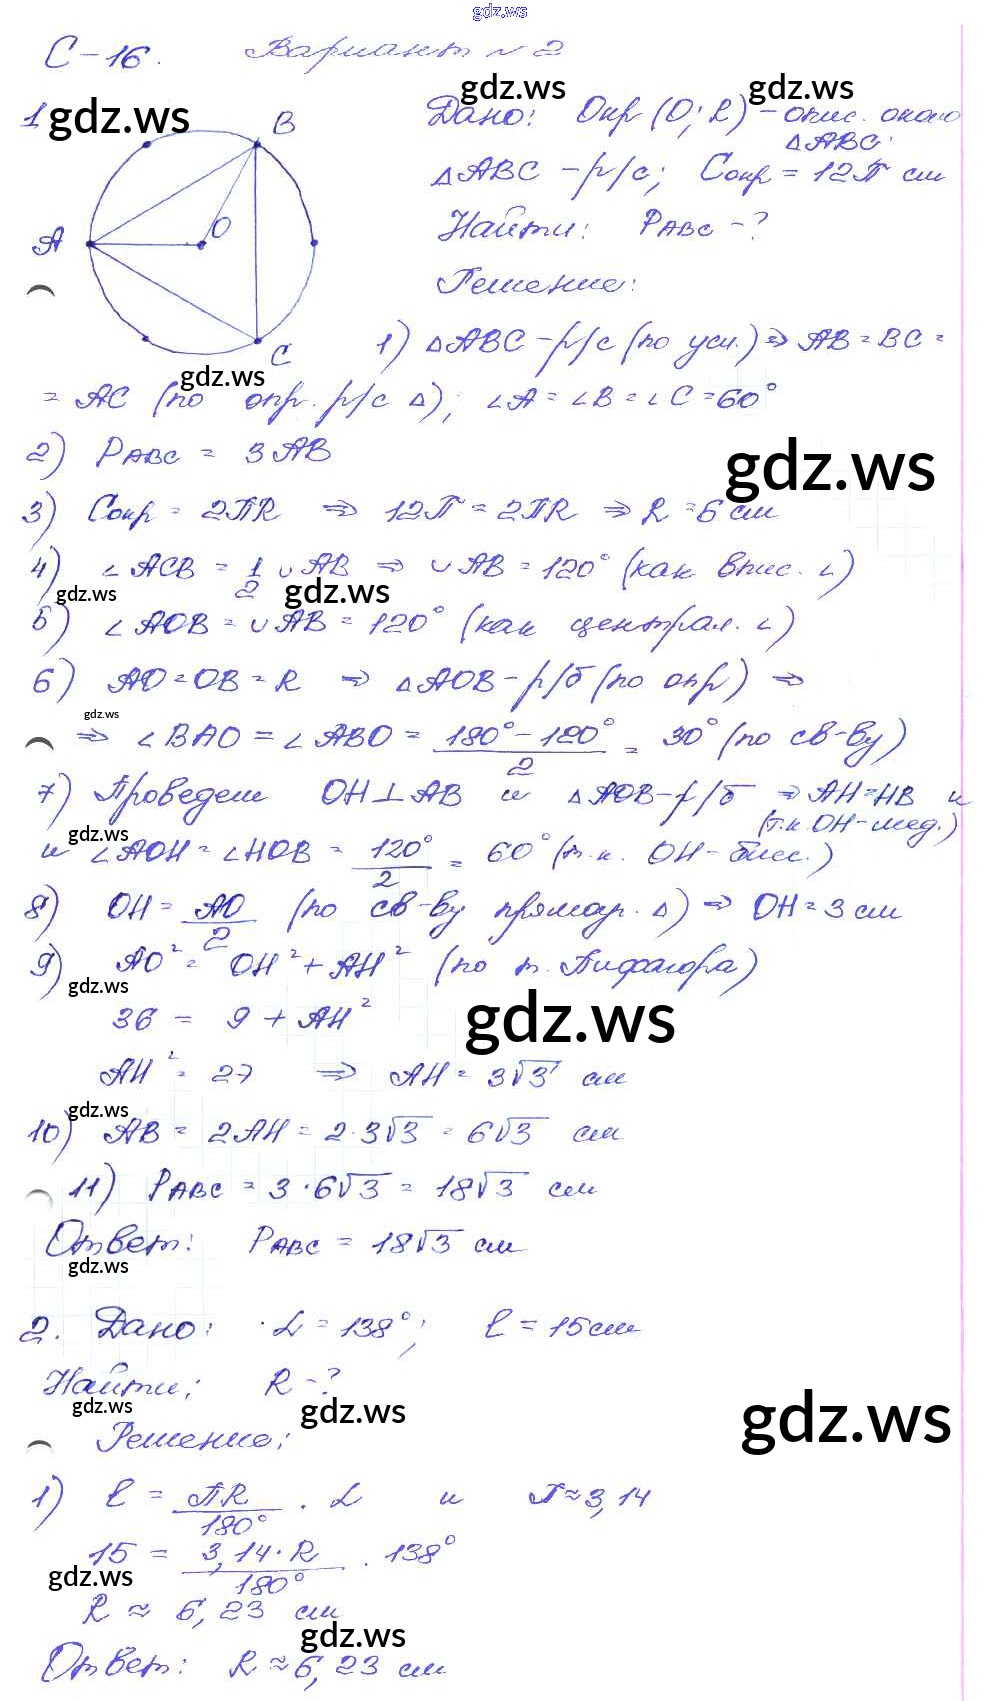 gdz.ws
С-16. Вариант №2
1
gdz.ws
gdz.ws
gdz.ws
B
O
A
C
Дано: Окр (O; R) - опис. около
△ABC.
△ABC - р/с; Cокр = 12π см
Найти: PABC - ?
Решение:
1) △ABC - р/с (по усл.) ⇒ AB = BC =
gdz.ws
= AC (по опр. р/с △); ∠A = ∠B = ∠C = 60°
2) PABC = 3AB
gdz.ws
3) Cокр = 2πR ⇒ 12π = 2πR ⇒ R = 6 см
4) ∠ACB = 1/2 ∪AB ⇒ ∪AB = 120° (как впис. ∠)
gdz.ws
gdz.ws
5) ∠AOB = ∪AB = 120° (как централ. ∠)
6) AO = OB = R ⇒ △AOB - р/б (по опр) ⇒
gdz.ws
⇒ ∠BAO = ∠ABO = (180° - 120°)/2 = 30° (по св-ву)
7) Проведем OH ⊥ AB и △AOB - р/б ⇒ AH = HB и
(т.к. OH - мед.)
gdz.ws
и ∠AOH = ∠HOB = 120°/2 = 60° (т.к. OH - бисс.)
8) OH = AO/2 (по св-ву прямоуг. △) ⇒ OH = 3 см
9) AO² = OH² + AH² (по т. Пифагора)
gdz.ws
gdz.ws
36 = 9 + AH²
AH² = 27 ⇒ AH = 3√3 см
gdz.ws
10) AB = 2AH = 2·3√3 = 6√3 см
11) PABC = 3·6√3 = 18√3 см
Ответ: PABC = 18√3 см
gdz.ws
2. Дано: α = 138°; ℓ = 15 см
Найти: R - ?
gdz.ws
gdz.ws
gdz.ws
Решение:
1) ℓ = πR/180° · α и π ≈ 3,14
15 = 3,14·R/180° · 138°
gdz.ws
R ≈ 6,23 см
gdz.ws
Ответ: R ≈ 6,23 см